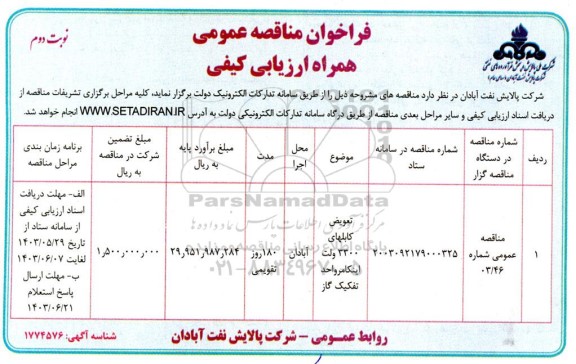 فراخوان مناقصه عمومی
همراه ارزیابی کیفی
نوبت دوم
شرکت ملی پالایش و پخش فرآورده‌های نفتی
شرکت پالایش نفت آبادان (سهامی عام)
شرکت پالایش نفت آبادان در نظر دارد مناقصه های مشروحه ذیل را از طریق سامانه تدارکات الکترونیک دولت برگزار نماید، کلیه مراحل برگزاری تشریفات مناقصه از
دریافت اسناد ارزیابی کیفی و سایر مراحل بعدی مناقصه از طریق درگاه سامانه تدارکات الکترونیکی دولت به آدرس WWW.SETADIRAN.IR انجام خواهد شد.
ردیف
شماره مناقصه
در دستگاه
مناقصه گزار
شماره مناقصه در سامانه
ستاد
موضوع
محل
اجرا
مدت
مبلغ برآورد پایه
به ریال
مبلغ تضمین
شرکت در مناقصه
به ریال
برنامه زمان بندی
مراحل مناقصه
۱
مناقصه
عمومی شماره
۰۳/۴۶
۲۰۰۳۰۹۲۱۷۹۰۰۰۳۲۵
تعویض
کابلهای
۳۳۰۰ ولت
اینکامر واحد
تفکیک گاز
آبادان
۱۸۰ روز
تقویمی
۲۹,۹۵۱,۹۸۷,۲۸۴
۱,۵۰۰,۰۰۰,۰۰۰
الف- مهلت دریافت
اسناد ارزیابی کیفی
از سامانه ستاد از
تاریخ ۱۴۰۳/۰۵/۲۹
لغایت ۱۴۰۳/۰۶/۰۷
ب- مهلت ارسال
پاسخ استعلام
۱۴۰۳/۰۶/۲۱
ParsNamadData
۰۲۱-۸۸۳۴۹۶۷۰-۵
روابط عمومی – شرکت پالایش نفت آبادان
شناسه آگهی: ۱۷۷۴۵۷۶